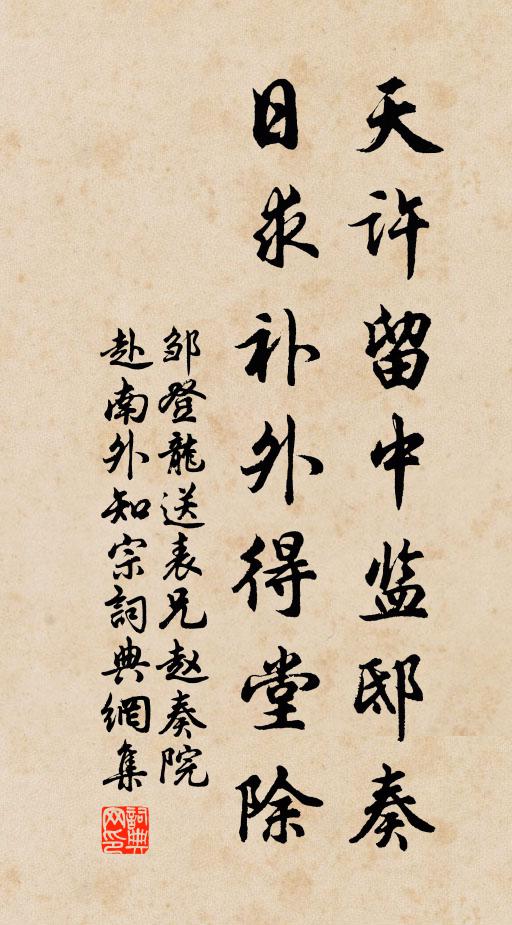 天许留中监邸奏
日求补外得堂除
邹登龍送表兄赵奏院
赴南外知宗詞典網集
詞典网印